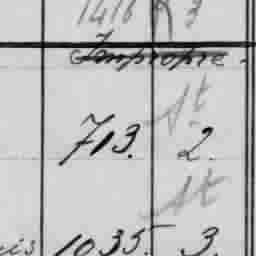 1416 R 3
Impropre.
St
713. 2.
St
is 1035. 3.